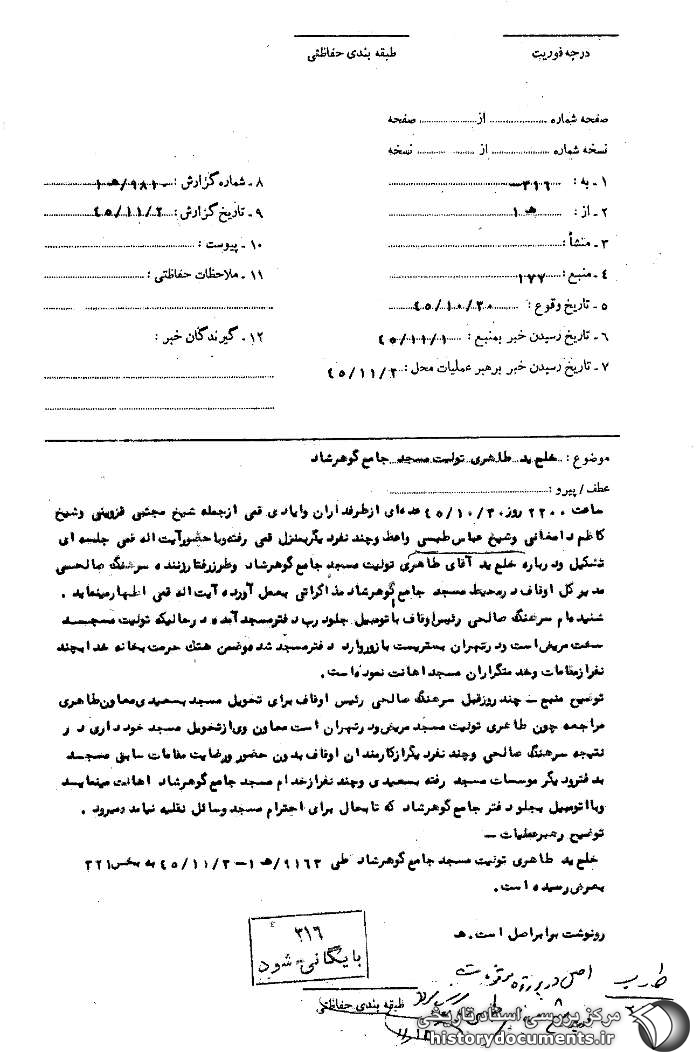 درجه فوریت
طبقه بندی حفاظتی
صفحه شماره ........ از ........ صفحه
نسخه شماره ........ از ........ نسخه
۱ ـ به : ۳۱۶
۲ ـ از : ۱ هـ
۳ ـ منشأ :
۴ ـ منبع : ۱۷۷
۵ ـ تاریخ وقوع : ۴۵/۱۰/۳۰
۶ ـ تاریخ رسیدن خبر بمنبع : ۴۵/۱۱/۱
۷ ـ تاریخ رسیدن خبر برهبر عملیات محل : ۴۵/۱۱/۲
۸ ـ شماره گزارش : ۹۸۱۰/هـ ۱
۹ ـ تاریخ گزارش : ۴۵/۱۱/۲
۱۰ ـ پیوست :
۱۱ ـ ملاحظات حفاظتی :
۱۲ ـ گیرندگان خبر :
موضوع : خلع ید طاهری تولیت مسجد جامع گوهرشاد
عطف / پیرو :
ساعت ۲۲۰۰ روز ۴۵/۱۰/۳۰ عده‌ای از طرفداران وایادی قمی از جمله شیخ مجتبی قزوینی وشیخ
کاظم دامغانی وشیخ عباس طبسی واعظ وچند نفر دیگر بمنزل قمی رفته وبا حضور آیت اله قمی جلسه ای
تشکیل ودرباره خلع ید آقای طاهری تولیت مسجد جامع گوهرشاد وطرز رفتار زننده سرهنگ صالحی
مدیر کل اوقاف درمحیط مسجد جامع گوهرشاد مذاکراتی بعمل آورده آیت اله قمی اظهار مینماید .
شنیده‌ام سرهنگ صالحی رئیس اوقاف با اتومبیل جلو درب دفتر مسجد آمده درحالیکه تولیت مسجد
سخت مریض است ودرتهران بستریست بازور وارد دفتر مسجد شده وضمن هتک حرمت بخانه خدا بچند
نفر از مقامات وخدمتگزاران مسجد اهانت نموده است .
توضیح منبع ـ چند روز قبل سرهنگ صالحی رئیس اوقاف برای تحویل مسجد بسعیدی معاون طاهری
مراجعه چون طاهری تولیت مسجد مریض ودرتهران است معاون وی از تحویل مسجد خودداری در
نتیجه سرهنگ صالحی وچند نفر دیگر از کارمندان اوقاف بدون حضور ورضایت مقامات سابق مسجد
بدفتر ودیگر موسسات مسجد رفته بسعیدی وچند نفر از خدام مسجد جامع گوهرشاد اهانت مینماید
وبا اتومبیل بجلو دفتر جامع گوهرشاد که تابحال برای احترام مسجد وسائل نقلیه نیامده میرود .
توضیح رهبر عملیات ـ
خلع ید طاهری تولیت مسجد جامع گوهرشاد طی ۹۱۶۲/هـ ۱ - ۴۵/۱۱/۲ به بخش ۳۲۱
بعرض رسیده است .
رونوشت برابر اصل است . هـ
۳۱۶
بایگانی شود
اصل در پرونده
طبقه بندی حفاظتی
مرکز بررسی اسناد تاریخی
historydocuments.ir